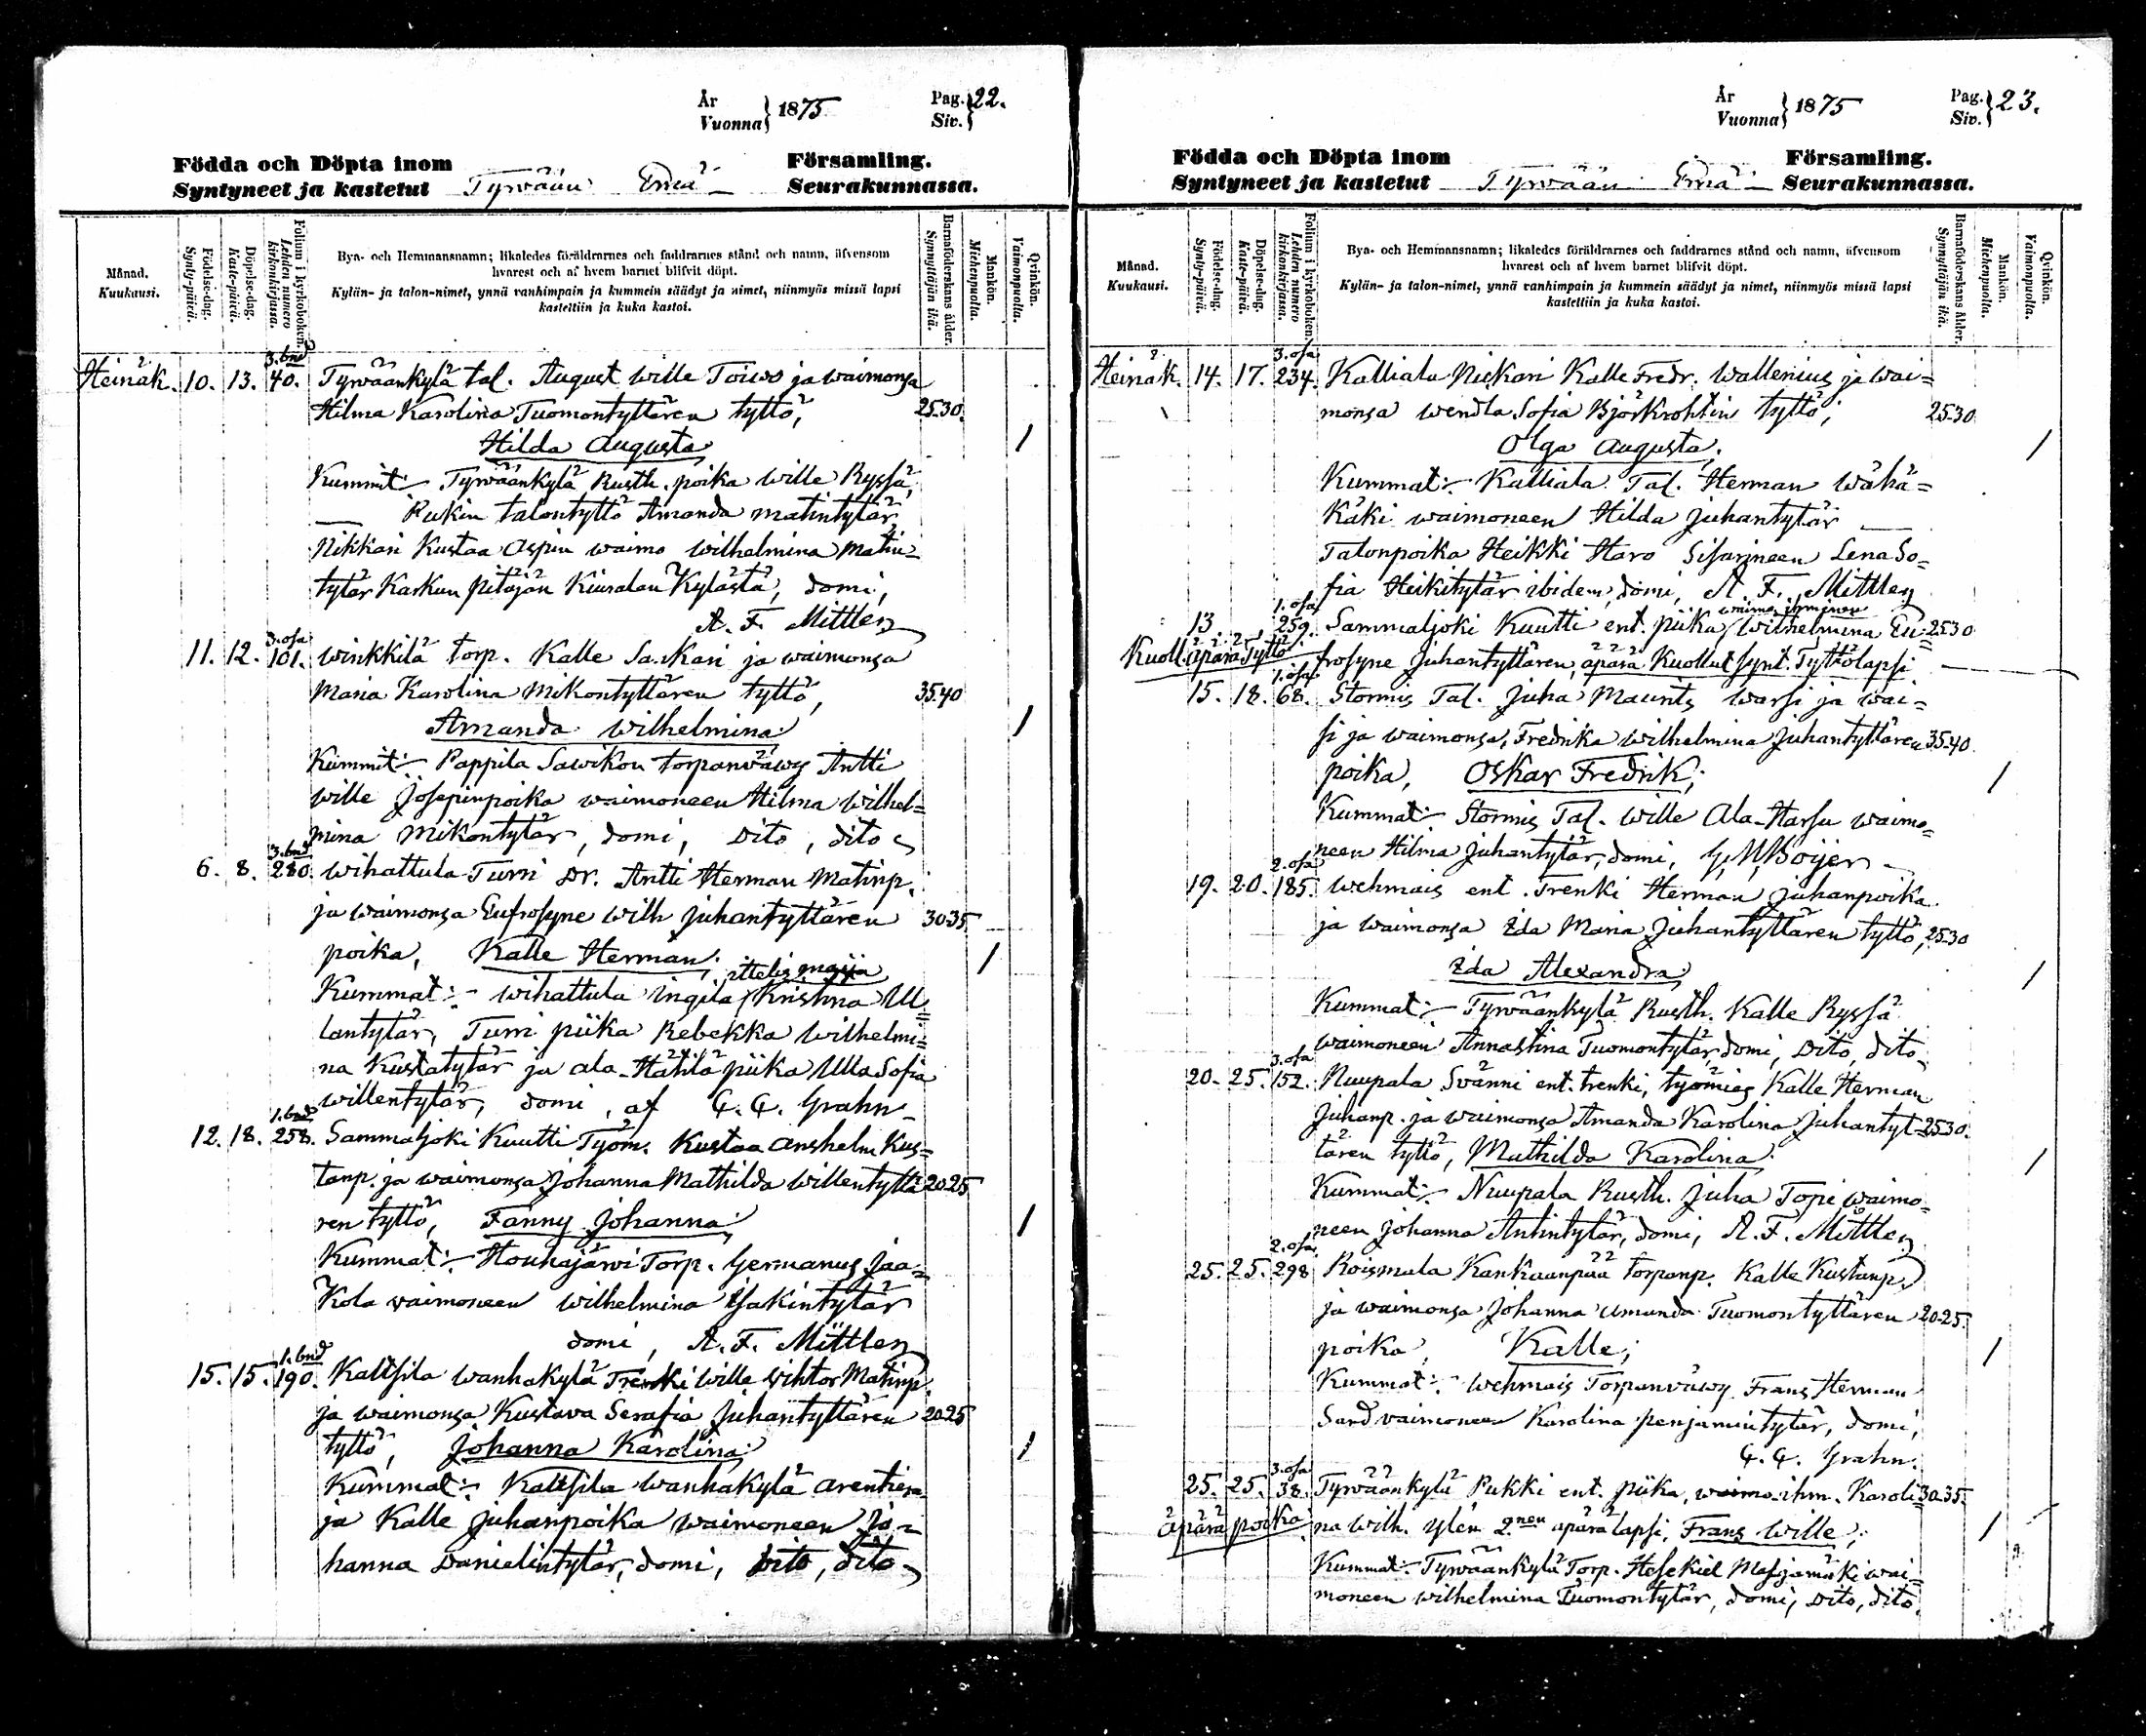 År
Vuonna } 1875
Pag.
Siv. } 22.
Födda och Döpta inom
Syntyneet ja kastetut Tyrwään Emä
Församling.
Seurakunnassa.
Månad.
Kuukausi.
Födelse-dag.
Synty-päivä.
Döpelse-dag.
Kaste-päivä.
Folium i kyrkoboken.
Lehden numero kirkonkirjassa.
Bya- och Hemmansnamn; likaledes föräldrarnes och faddrarnes stånd och namn, äfvensom
hvarest och af hvem barnet blifvit döpt.
Kylän- ja talon-nimet, ynnä vanhimpain ja kummein säädyt ja nimet, niinmyös missä lapsi
kastettiin ja kuka kastoi.
Barnaföderskans ålder.
Synnyttäjän ikä.
Mankön.
Miehenpuolia.
Qvinkön.
Vaimonpuolia.
3. bnd
Heinäk. 10. 13. 40. Tyrwäänkylä tal. August Wille Toiwo ja waimonsa
Hilma Karolina Tuomontyttären tyttö, 25.30.
Hilda Augusta /
Kummit:- Tyrwäänkylä Rusth. poika Wille Ryssä,
Pukin talontyttö Amanda Matintytär
Nikkari Kustaa Aspin waimo Wilhelmina Matin-
tytär Karkun pitäjän Kiuralan Kylästä, domi,
A. F. Mittler
3. osa
11. 12. 101. Winkkilä torp. Kalle Saskari ja waimonsa
Maria Karolina Mikontyttären tyttö, 35.40
Amanda Wilhelmina /
Kummit:- Pappila Sawikon torpanwäwy Antti
Wille Josepinpoika waimoneen Hilma Wilhel=
mina Mikontytär, domi, Dito, dito
3. bnd
6. 8. 280. Wihattula Turri Dr. Antti Herman Matinp.
ja waimonsa Eufrosyne Wilh. Juhantyttären 30-35
poika, Kalle Herman; /
ittellis. maija
Kummat:- Wihattula Ingila Kristina Ul=
lantytär, Turri piika Rebekka Wilhelmi=
na Kustatytär ja Ala-Hätilä piika Ulla Sofia
Willentytär, domi, af G. G. Grahn
1. bnd
12. 18. 258. Sammaljoki Kuutti Tyom. Kustaa Anshelm Kus=
tanp. ja waimonsa Johanna Mathilda Willentyttä 20.25
ren tyttö, Fanny Johanna /
Kummat:- Houhajärwi Torp. Germanus Jaa=
Kola waimoneen Wilhelmina Isakintytär
domi, A. F. Mittler
1. bnd
15. 15. 190. Kaltsila Wanhakylä Trenki Wille Wihtor Matinp.
ja waimonsa Kustava Serafia Juhantyttären 20.25
tyttö, Johanna Karolina; /
Kummat:- Kaltsila Wanhakylä arentie
ja Kalle Juhanpoika waimoneen Jo=
hanna Danielintytär, domi, Dito, dito
År
Vuonna } 1875
Pag.
Siv. } 23.
Födda och Döpta inom
Syntyneet ja kastetut Tyrwään Emä
Församling.
Seurakunnassa.
Månad.
Kuukausi.
Födelse-dag.
Synty-päivä.
Döpelse-dag.
Kaste-päivä.
Folium i kyrkoboken.
Lehden numero kirkonkirjassa.
Bya- och Hemmansnamn; likaledes föräldrarnes och faddrarnes stånd och namn, äfvensom
hvarest och af hvem barnet blifvit döpt.
Kylän- ja talon-nimet, ynnä vanhimpain ja kummein säädyt ja nimet, niinmyös missä lapsi
kastettiin ja kuka kastoi.
Barnaföderskans ålder.
Synnyttäjän ikä.
Mankön.
Miehenpuolia.
Qvinkön.
Vaimonpuolia.
3. osa
Heinäk. 14. 17. 234. Kalliala Nickari Kalle Fredr. Wallenius ja wai=
monsa Wendla Sofia Björkrohtin tyttö; 25-30
Olga Augusta; /
Kummat:- Kalliala Tal. Herman Wähä=
Käki waimoneen Hilda Juhantytär
Talonpoika Heikki Haro Sisarineen Lena So=
fia Heikitytär ibidem, domi, A. F. Mittler
1. osa
waimo ihminen
13. 259. Sammaljoki Kuutti ent. piika Wilhelmina Eu= 25.30
Kuoll. äpärä Tyttö frosyne Juhantyttären, äpärä Kuollut synt. Tyttölapsi
1. osa
15. 18. 68. Stormis Tal. Juha Maurits Warsi ja wai=
si ja waimonsa, Fredrika Wilhelmina Juhantyttären 35-40
poika, Oskar Fredrik; /
Kummat:- Stormis Tal. Wille Ala-Harsu waimo=
neen Hilma Juhantytär, domi, G. W. Boijer
2. osa
19. 20. 185. Wehmais ent. Trenki Herman Juhanpoika
ja waimonsa Ida Maria Juhantyttären tyttö, 25-30
Ida Alexandra /
Kummat:- Tyrwäänkylä Rusth. Kalle Ryssä
waimoneen Annastina Tuomontytär, domi, Dito, dito
3. osa
20. 25. 152. Nuupala Svänni ent. trenki, työmies Kalle Herman
Juhanp. ja waimonsa Amanda Karolina Juhantyt= 25.30.
tären tyttö, Mathilda Karolina /
Kummat:- Nuupala Rusth. Juha Topi waimo=
neen Johanna Antintytär, domi, A. F. Mittler
2. osa
25. 25. 298 Roismala Kankaanpää torpanp. Kalle Kustanp.
ja waimonsa Johanna Amanda Tuomontyttären 20-25.
poika, Kalle; /
Kummat:- Wehmais Torpanwäwy Frans Herman
Sard waimoneen Karolina Penjamintytär, domi,
G. G. Grahn.
3. osa
25. 25. 38. Tyrwäänkylä Pukki ent. piika, waimo-ihm. Karoli= 30.35.
äpärä poika na Wilh. Ylen 2.nen äpärä lapsi, Frans Wille; /
Kummat:- Tyrwäänkylä Torp. Hesekiel Masiamäki wai=
moneen Wilhelmina Tuomontytär, domi, Dito, dito.